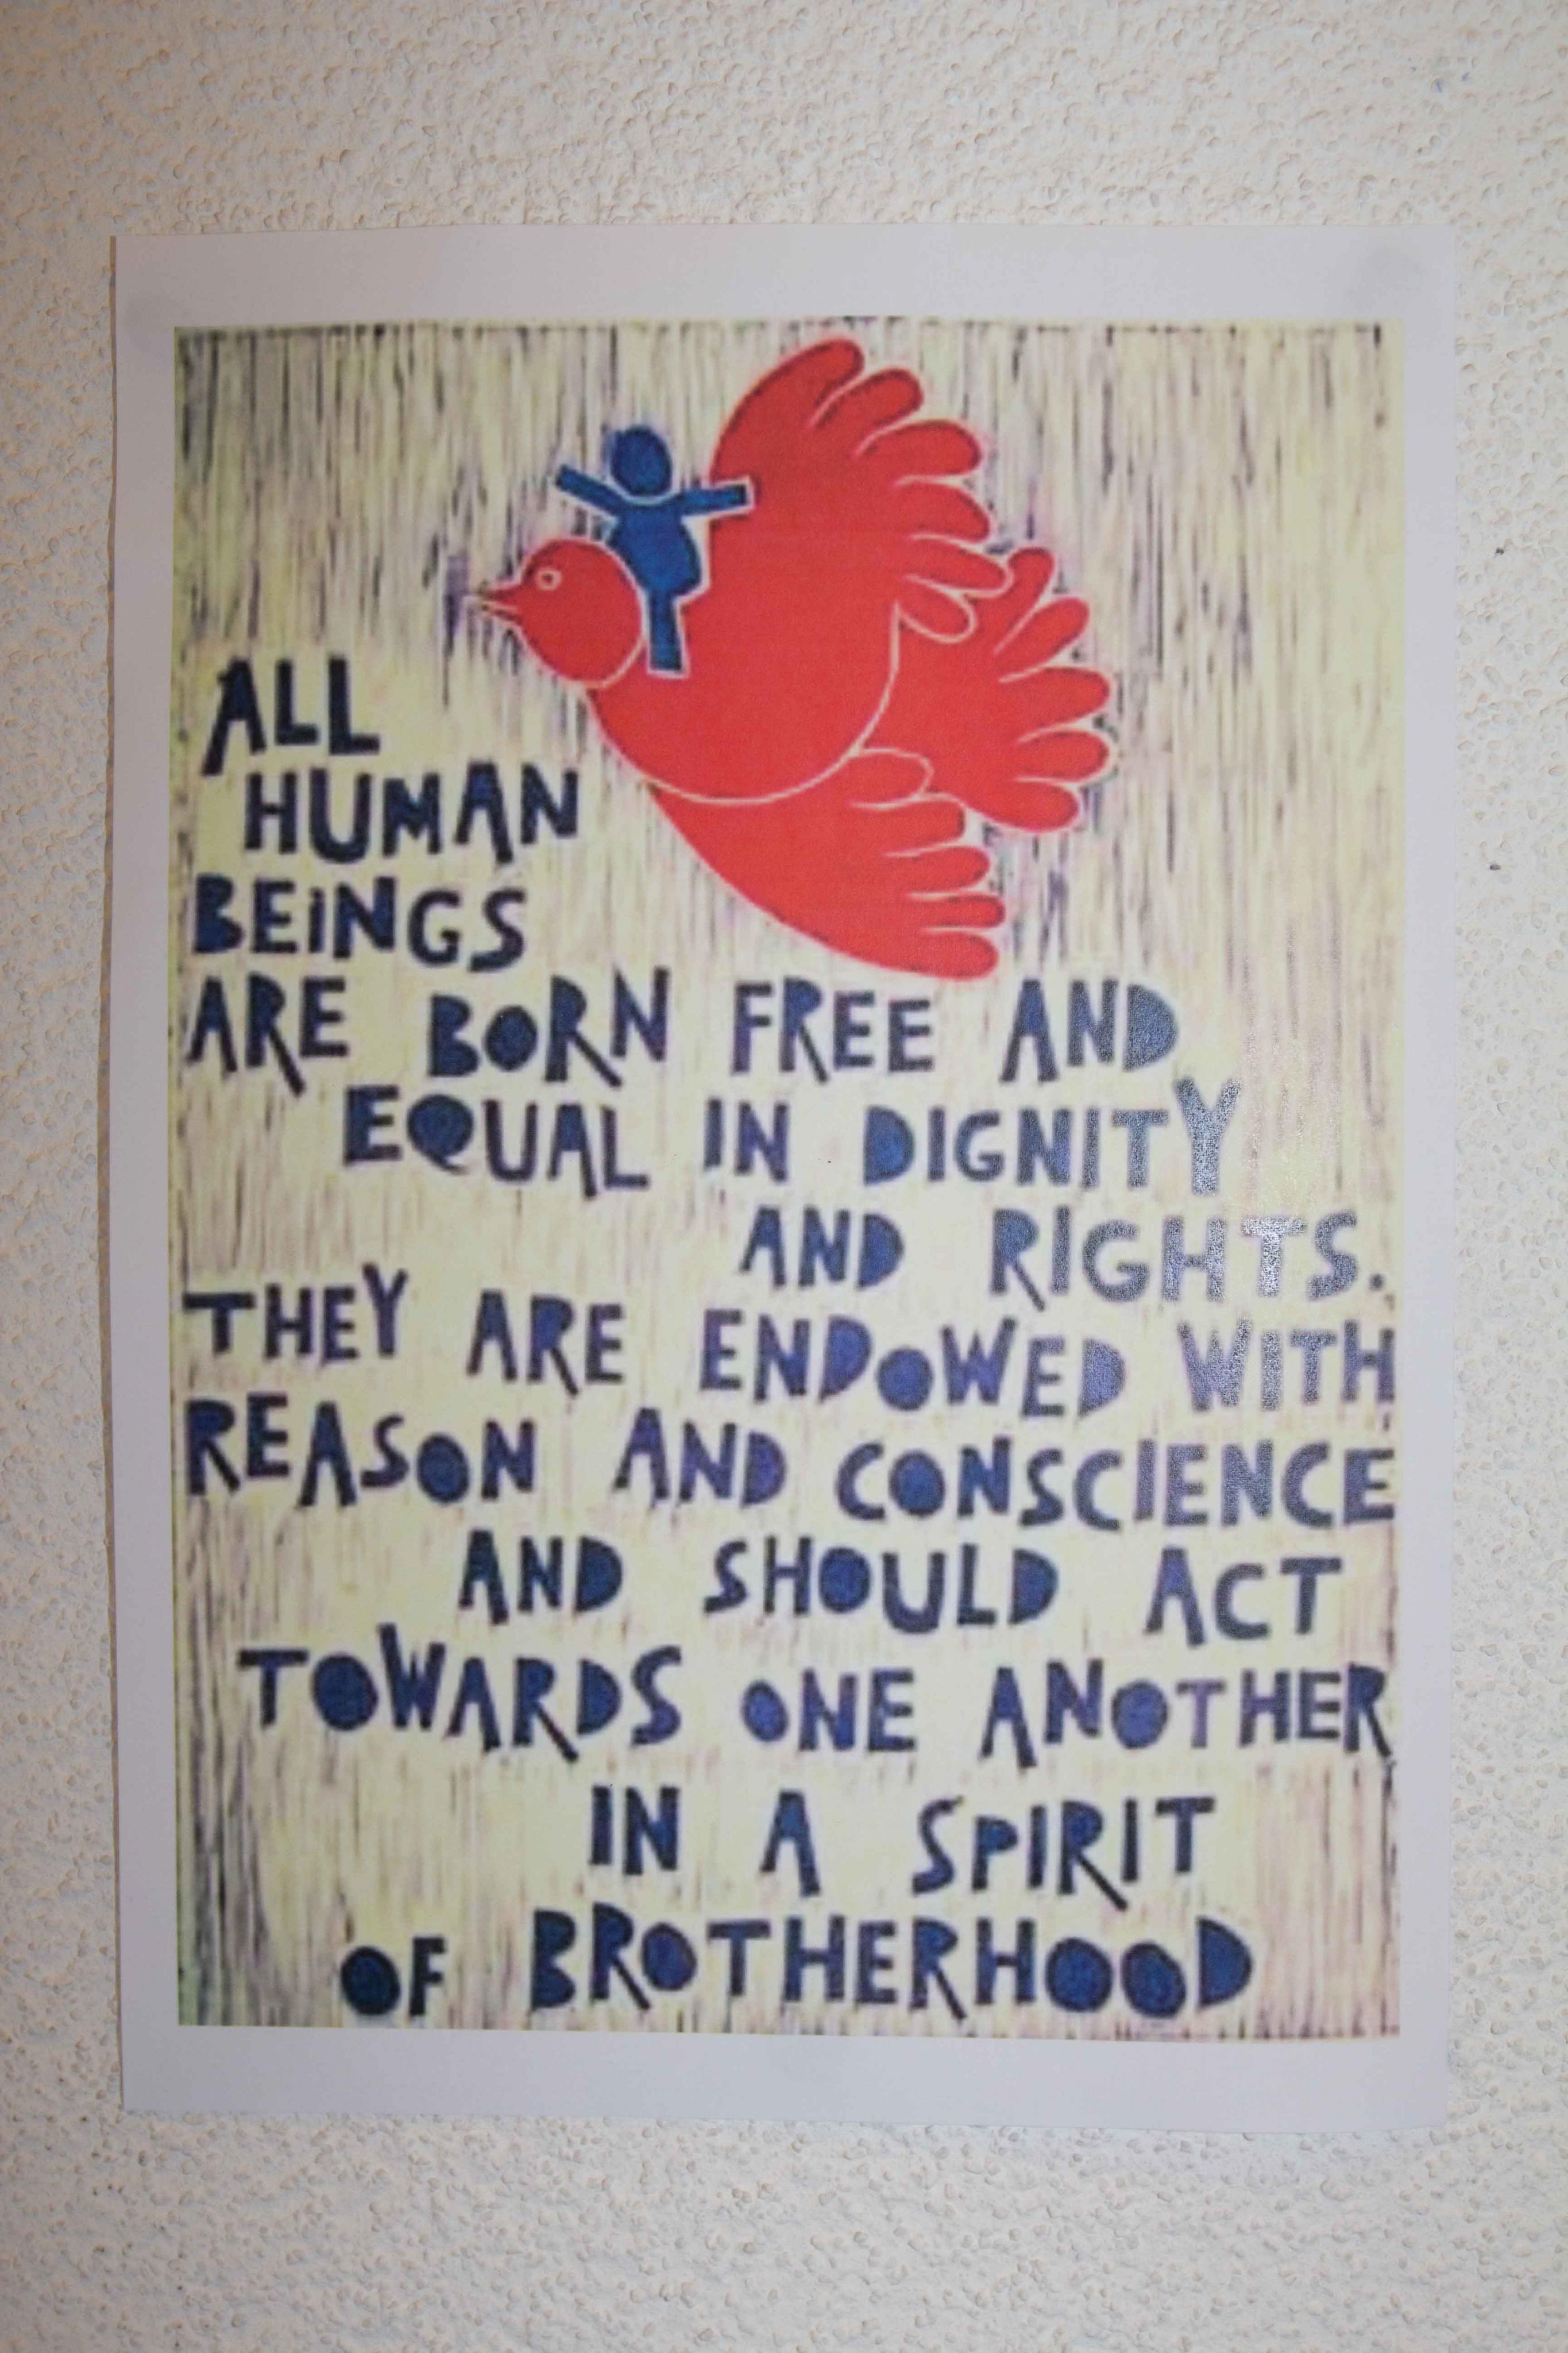 ALL
HUMAN
BEINGS
ARE BORN FREE AND
EQUAL IN DIGNITY
AND RIGHTS.
THEY ARE ENDOWED WITH
REASON AND CONSCIENCE
AND SHOULD ACT
TOWARDS ONE ANOTHER
IN A SPIRIT
OF BROTHERHOOD